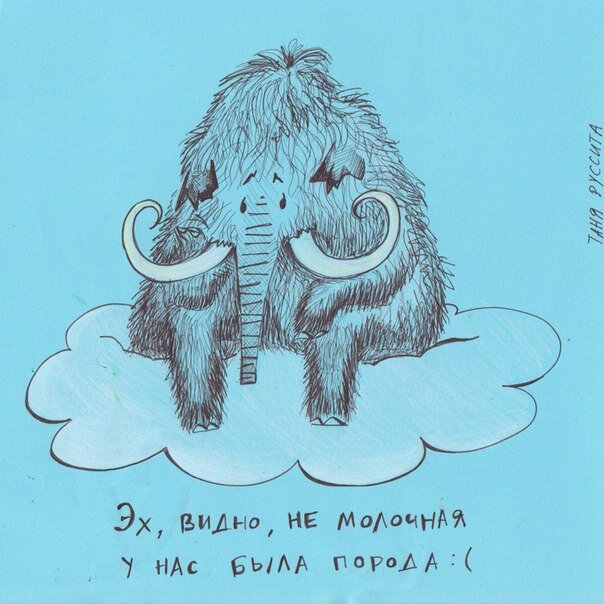 Эх, видно, не молочная
у нас была порода:(
Таня Руссита